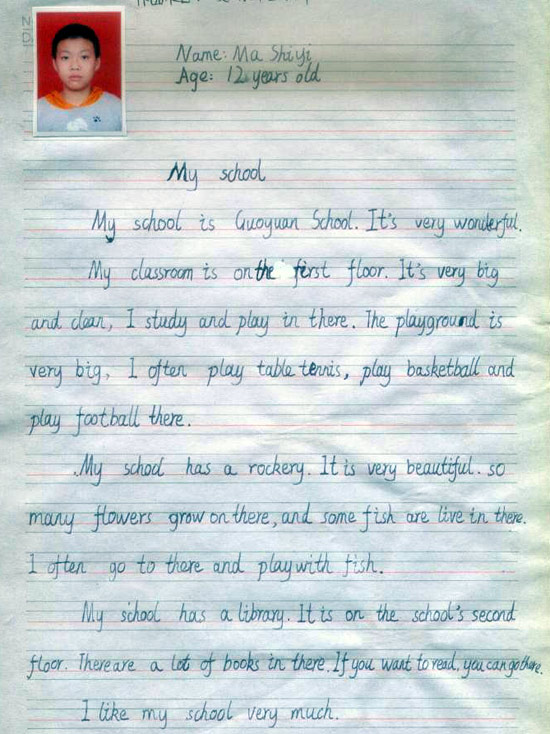 Name: Ma Shiyi
Age: 12 years old
My school
My school is Guoyuan School. It's very wonderful.
My classroom is on the first floor. It's very big
and clean, I study and play in there. The playground is
very big, I often play table tennis, play basketball and
play football there.
My school has a rockery. It is very beautiful. so
many flowers grow on there, and some fish are live in there.
I often go to there and play with fish.
My school has a library. It is on the school's second
floor. There are a lot of books in there. If you want to read, you can go there.
I like my school very much.